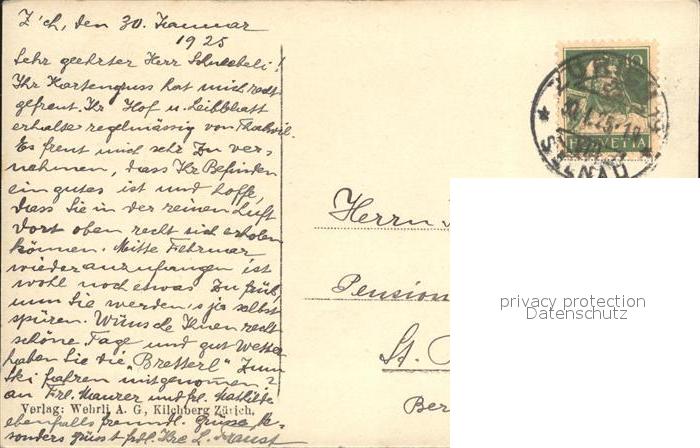 Z'ch, den 30. Januar
1925
Sehr geehrter Herr Schneebeli!
Ihr Kartengruss hat mich recht
gefreut. Ihr Hof u. Leibblatt
erhalte regelmässig von Thalwil.
Es freut mich sehr zu ver-
nehmen, dass Ihr Befinden
ein gutes ist und hoffe,
dass Sie in der reinen Luft
dort oben recht sich erholen
können. Mitte Februar
wieder anzufangen ist
wohl noch etwas zu früh,
nun Sie werden's ja selbst
spüren. Wünsche Ihnen recht
schöne Tage und gut Wetter
haben Sie die "Bretterl" zum
Ski fahren mitgenomen?
an Frl. Maurer und frl. Mathilde
Verlag: Wehrli A. G., Kilchberg Zürich.
ebenfalls freundl. Grüsse be-
sonders grüsst frdl. Ihre L.
Herrn
Pension
St.
Ber
10
HELVETIA
SELNAU
privacy protection
Datenschutz